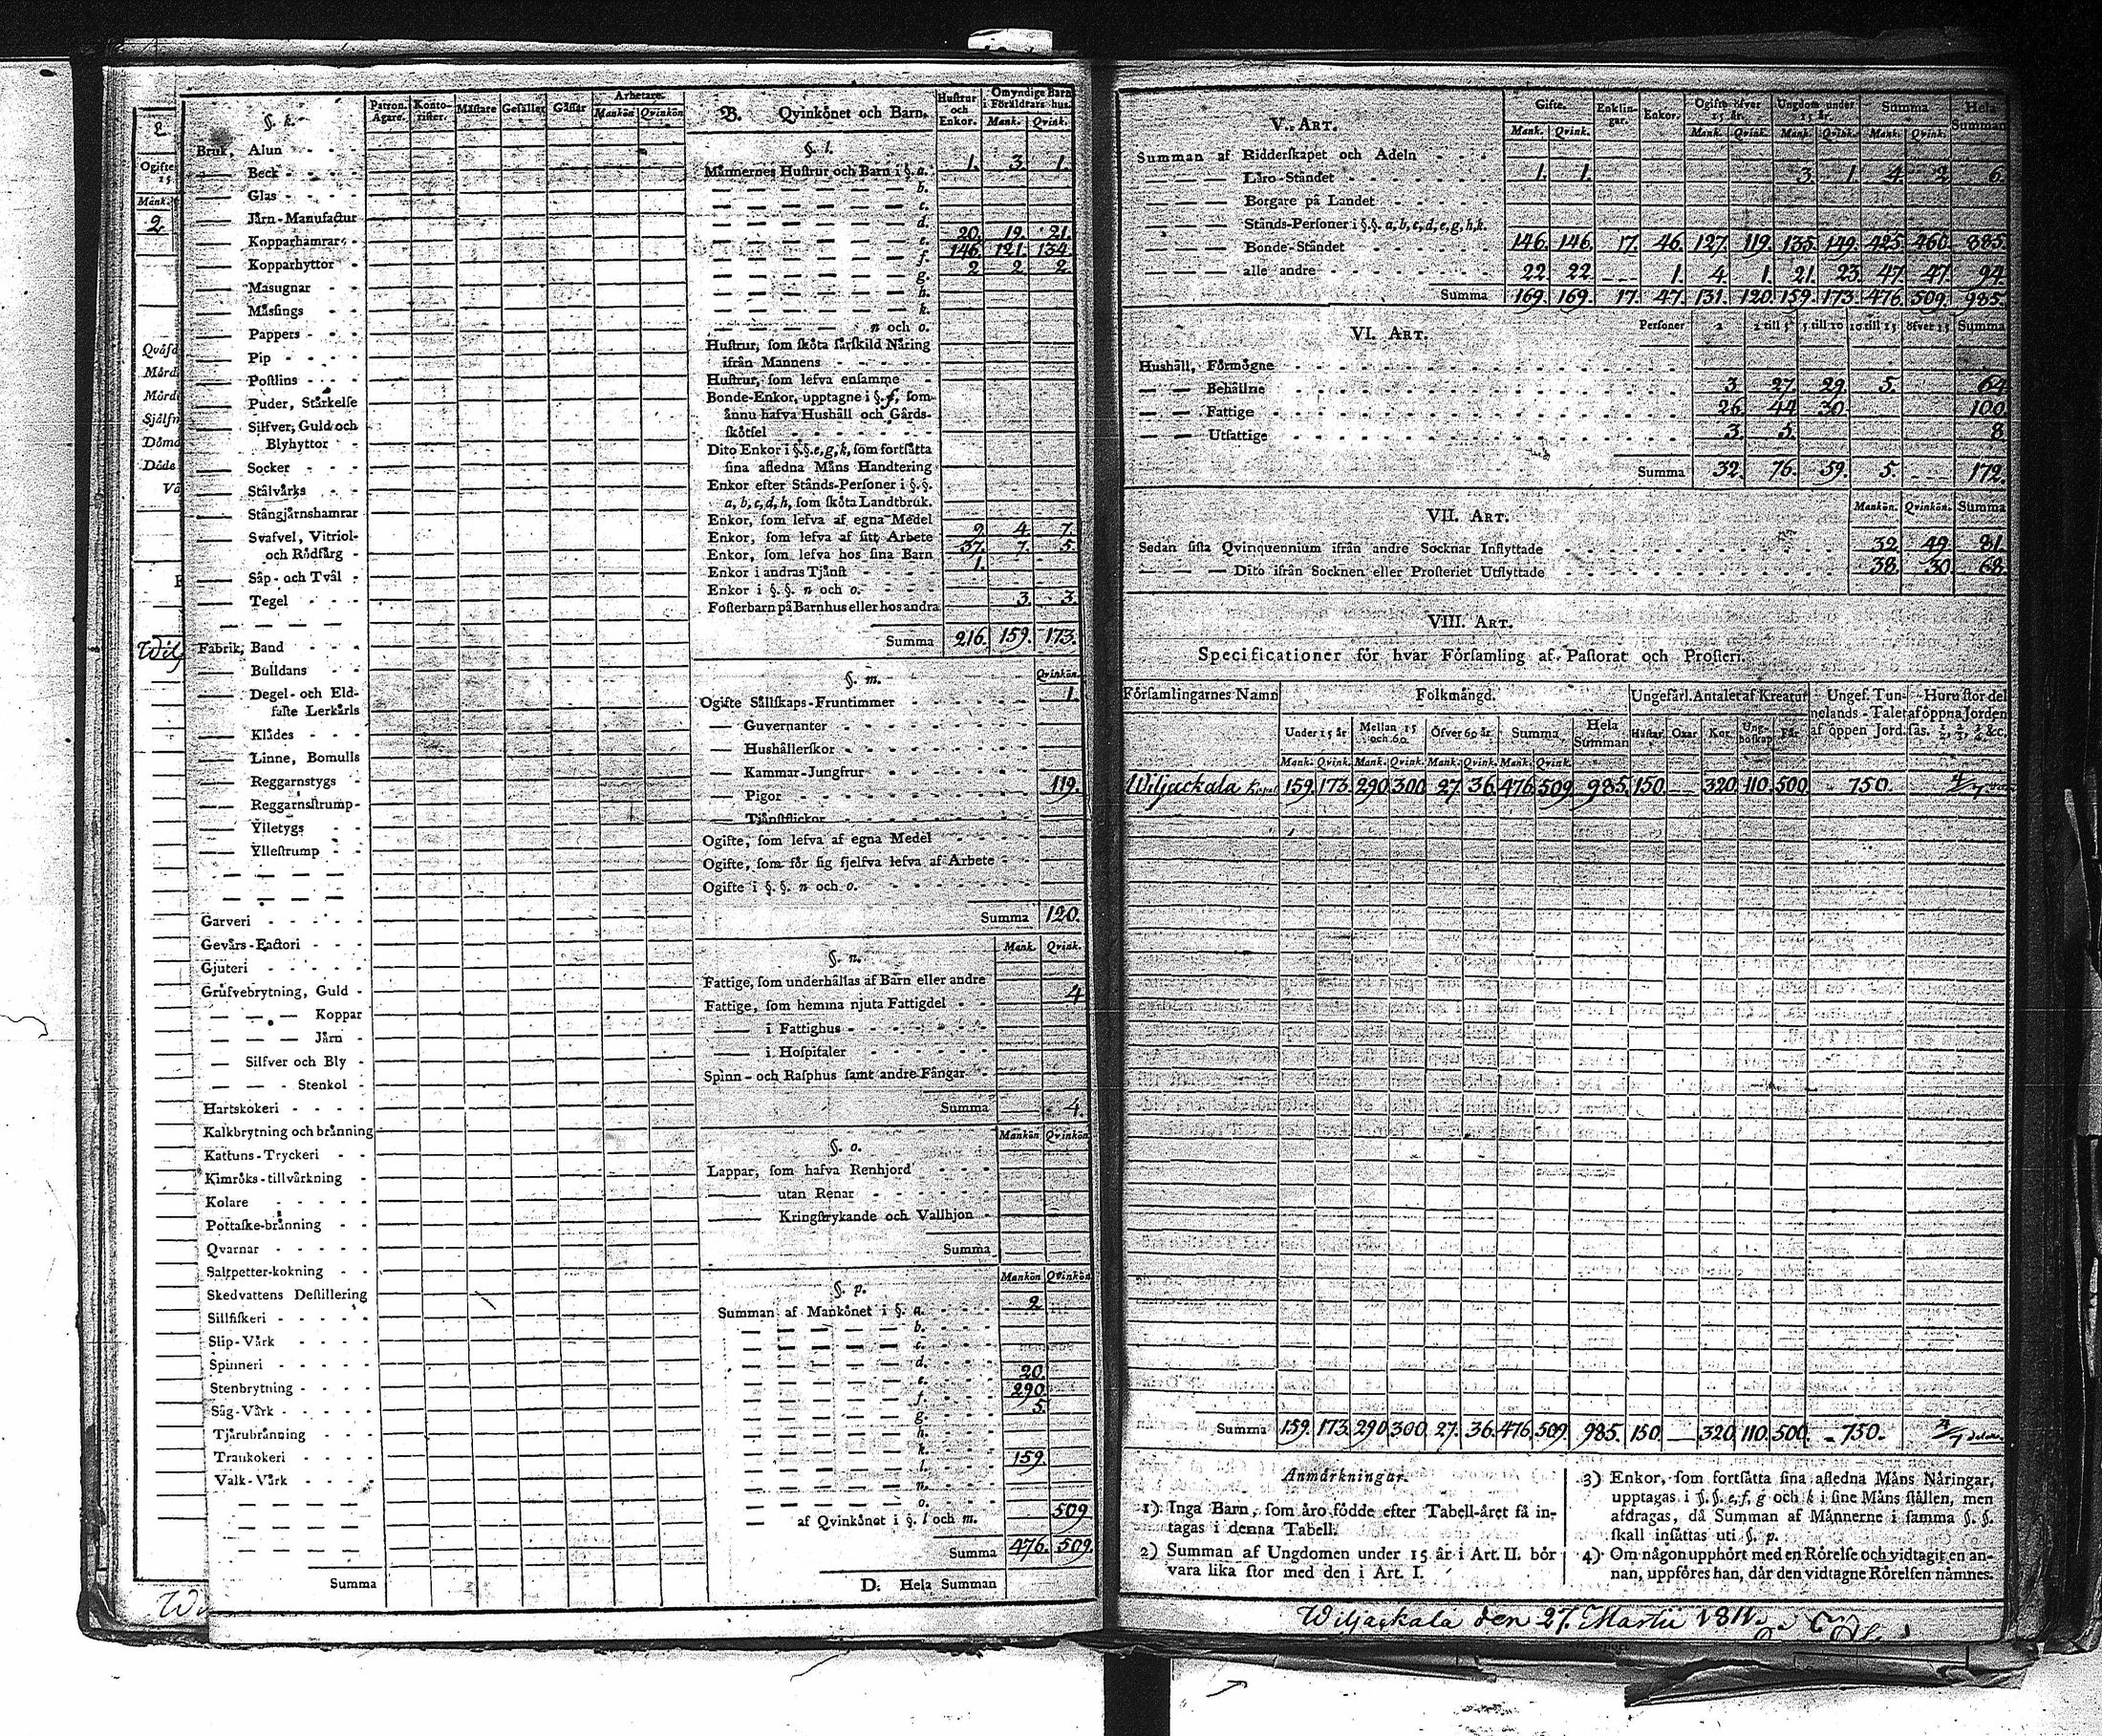 §. k.
Patron. Ägare.
Konto-rister.
Måstare
Gesäller
Gåssar
Arbetare.
Mankön
Qvinkön
Bruk, Alun - - -
—— Beck - - - -
—— Glas - - - -
—— Jårn-Manufactur
—— Kopparhamrar -
—— Kopparhyttor -
—— Masugnar - -
—— Måsfings - -
—— Pappers - - -
—— Pip - - - -
—— Postlins - - -
—— Puder, Stårkelse
—— Silfver, Guld och
Blyhyttor - -
—— Socker - - -
—— Stålvårks - -
—— Stångjårnshamrar
—— Svafvel, Vitriol-
och Rödfårg -
—— Såp- och Tvål -
—— Tegel - - -
— — — —
Fabrik, Band - - -
—— Bulldans - -
—— Degel- och Eld-
faste Lerkårls
—— Klådes - - -
—— Linne, Bomulls
—— Reggarnstygs -
—— Reggarnsstrump-
—— Ylletygs - -
—— Yllestrump - -
— — — —
— — — —
Garveri - - - - -
Gevårs-Factori - - -
Gjuteri - - - - -
Grufvebrytning, Guld -
— — — Koppar
— — — Jårn -
— Silfver och Bly -
— — - Stenkol -
Hartskokeri - - - -
Kalkbrytning och brånning
Kattuns-Tryckeri - -
Kimröks-tillvårkning -
Kolare - - - - -
Pottaske-brånning - -
Qvarnar - - - - -
Saltpetter-kokning - -
Skedvattens Destillering
Sillfiskeri - - - - -
Slip-Vårk - - - -
Spinneri - - - - -
Stenbrytning - - - -
Såg-Vårk - - - - -
Tjårubrånning - - -
Trankokeri - - - -
Valk-Vårk - - - -
— — — —
— — — —
— — — —
Summa
B. Qvinkönet och Barn.
Hustrur och Enkor.
Omyndige Barn i Föråldrars hus.
Mank. Qvink.
§. l.
Månnernes Hustrur och Barn i §. a. 1. 3. 1.
— — — — — b.
— — — — — c.
— — — — — d.
— — — — — e. 20. 19. 21.
— — — — — f. 146. 121. 134.
— — — — — g. 2 2. 2
— — — — — h.
— — — — — k.
— — — — n och o.
Hustrur, som sköta sårskild Nåring
ifrån Mannens - - - - -
Hustrur, som lefva ensamme -
Bonde-Enkor, upptagne i §. f, som
ånnu hafva Hushåll och Gårds-
skötsel - - - - - -
Dito Enkor i §.§. e, g, k, som fortsåtta
sina afledna Måns Handtering
Enkor efter Stånds-Personer i §.§.
a, b, c, d, h, som sköta Landtbruk.
Enkor, som lefva af egna Medel
Enkor, som lefva af sitt Arbete 9 4. 7.
Enkor, som lefva hos sina Barn 37. 7. 5.
Enkor i andras Tjånst - - - - 1.
Enkor i §. §. n och o. - - - -
Fosterbarn på Barnhus eller hos andra 3. 3.
Summa 216. 159. 173.
§. m.
Qvinkön.
Ogifte Sållskaps-Fruntimmer - - - - - - 1.
— Guvernanter - - - - - - - -
— Hushållerskor - - - - - - - -
— Kammar-Jungfrur - - - - - -
— Pigor - - - - - - - - - 119.
— Tjånstflickor - - - - - - - -
Ogifte, som lefva af egna Medel - - - -
Ogifte, som för sig sjelfva lefva af Arbete - -
Ogifte i §. §. n och o. - - - - - - -
Summa 120.
§. n.
Mank. Qvink.
Fattige, som underhållas af Barn eller andre
Fattige, som hemma njuta Fattigdel - - 4
—— i Fattighus - - - - - - -
—— i Hospitaler - - - - - -
Spinn- och Rasphus samt andre Fångar -
Summa 4.
§. o.
Mankön Qvinkön
Lappar, som hafva Renhjord - - - -
—— utan Renar - - - - - -
—— Kringstrykande och Vallhjon -
Summa
§. p.
Mankön Qvinkön
Summan af Mankönet i §. a. - - - 2
— — — — — b. - - -
— — — — — c. - - -
— — — — — d. - - -
— — — — — e. - - - 20.
— — — — — f. - - - 290
— — — — — g. - - - 5.
— — — — — h. - - -
— — — — — k. - - -
— — — — — l. - - - 159.
— — — — — n. - - -
— — — — — o. - - -
— af Qvinkönet i §. l och m. 509
Summa 476. 509.
D. Hela Summan
V. Art.
Gifte.
Enklin-gar.
Enkor.
Ogifte öfver 15 år.
Ungdom under 15 år.
Summa
Hela Summan
Mank. Qvink. Mank. Qvink. Mank. Qvink. Mank. Qvink.
Summan af Ridderskapet och Adeln - - -
— — — Låro-Ståndet - - - - - - 1. 1. 3. 1. 4. 2. 6.
— — — Borgare på Landet - - - -
— — — Stånds-Personer i §.§. a, b, c, d, e, g, h, k.
— — — Bonde-Ståndet - - - - - 146. 146. 17. 46. 127. 119. 135. 149. 425. 460. 885.
— — — alle andre - - - - - - 22. 22. --- 1. 4. 1. 21. 23. 47. 47. 94.
Summa 169. 169. 17. 47. 131. 120. 159. 173. 476. 509. 985.
VI. Art.
Personer 2 2 till 5 5 till 10 10 till 15 öfver 15 Summa
Hushåll, Förmögne - - - - - -
— — Behållne - - - - - - 3. 27. 29. 5. 64
— — Fattige - - - - - - 26. 44 30 100.
— — Utfattige - - - - - - 3. 5. 8
Summa 32. 76. 59. 5. --- 172.
VII. Art.
Mankön. Qvinkön. Summa
Sedan sista Qvinquennium ifrån andre Socknar Inflyttade - - - 32. 49. 81.
— — — Dito ifrån Socknen eller Prosteriet Utflyttade - - - 38. 30. 68.
VIII. Art.
Specificationer för hvar Församling af Pastorat och Prosteri.
Församlingarnes Namn
Folkmångd.
Ungefårl. Antalet af Kreatur
Ungef. Tun-nelands-Talet af öppen Jord.
Huru stor del af öppna Jorden
Under 15 år
Mellan 15 och 60.
Öfver 60 år.
Summa
Hela Summan
Håstar. Oxar. Kor. Ung-boskap. Får.
Mank. Qvink. Mank. Qvink. Mank. Qvink. Mank. Qvink.
Wiljackala 159. 173. 290. 300. 27. 36. 476. 509. 985. 150. — 320. 110. 500. 750.
Summa 159. 173. 290. 300. 27. 36. 476. 509. 985. 150. — 320. 110. 500. 750.
Anmårkningar.
1) Inga Barn, som åro födde efter Tabell-året få in-
tagas i denna Tabell.
2) Summan af Ungdomen under 15 år i Art. II. bör
vara lika stor med den i Art. I.
3) Enkor, som fortsåtta sina afledna Måns Nåringar,
upptagas i §. §. e, f, g och k i sine Måns stållen, men
afdragas, då Summan af Månnerne i samma §. §.
skall insåttas uti §. p.
4) Om någon upphört med en Rörelse och vidtagit en an-
nan, uppföres han, dår den vidtagne Rörelsen nåmnes.
Wiljackala den 27. Martii 1811.